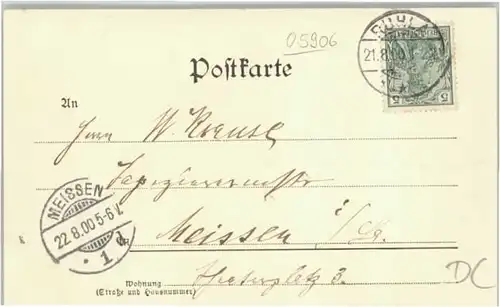 05906
RUHLA
21.8.00
Postkarte
5
An
Herrn W. Krause
Tapezierermstr
MEISSEN
22.8.00 5-6 N.
* 1 d
Meissen i/Sa.
Theaterplatz 3.
Wohnung
(Straße und Hausnummer)
DC